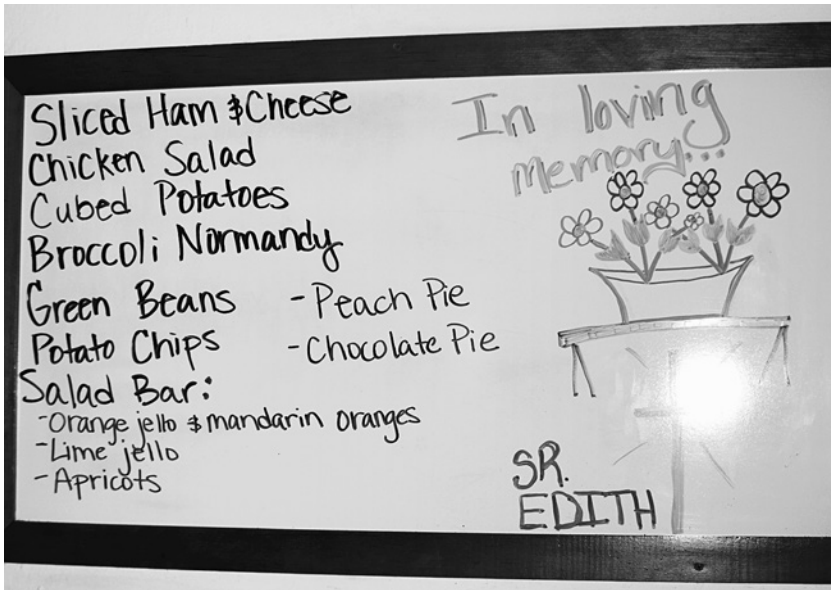 Sliced Ham & Cheese
Chicken Salad
Cubed Potatoes
Broccoli Normandy
Green Beans
Potato Chips
- Peach Pie
- Chocolate Pie
Salad Bar:
- Orange jello & mandarin oranges
- Lime jello
- Apricots
In loving
memory...
SR.
EDITH